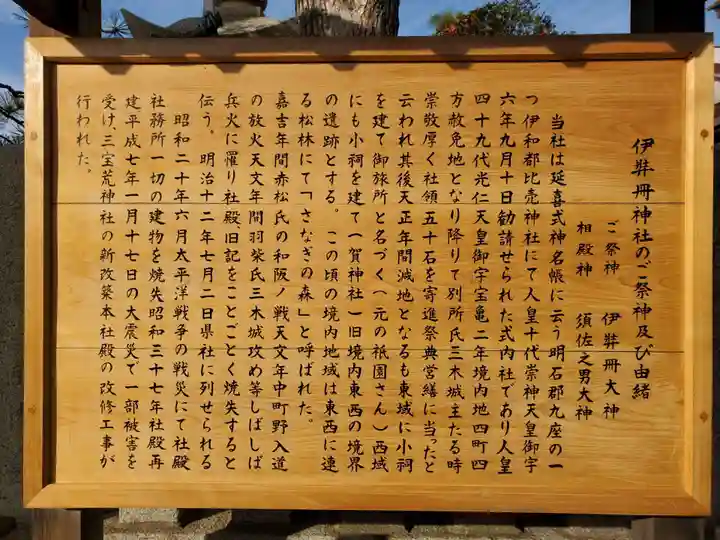 伊弉冊神社のご祭神及び由緒
ご祭神 伊弉冊大神
相殿神 須佐之男大神
当社は延喜式神名帳に云う明石郡九座の一
つ伊和都比売神社にて人皇十代崇神天皇御宇
六年九月十日勧請せられた式内社であり人皇
四十九代光仁天皇御宇宝亀二年境内地四町四
方赦免地となり降りて別所氏三木城主たる時
崇敬厚く社領五十石を寄進祭典営繕に当ったと
云われ其後天正年間減地となるも東域に小祠
を建て御旅所と名づく(元の祇園さん)西域
にも小祠を建て(賀神社)旧境内東西の境界
の遺跡とする。この頃の境内地域は東西に連
る松林にて「さなぎの森」と呼ばれた。
嘉吉年間赤松氏の和阪ノ戦天文年中町野入道
の放火天文年間羽柴氏三木城攻め等しばしば
兵火に罹り社殿旧記をことごとく焼失すると
伝う。明治十二年七月二日県社に列せられる
昭和二十年六月太平洋戦争の戦災にて社殿
社務所一切の建物を焼失昭和三十七年社殿再
建平成七年一月十七日の大震災で一部被害を
受け、三宝荒神社の新改築本社殿の改修工事が
行われた。